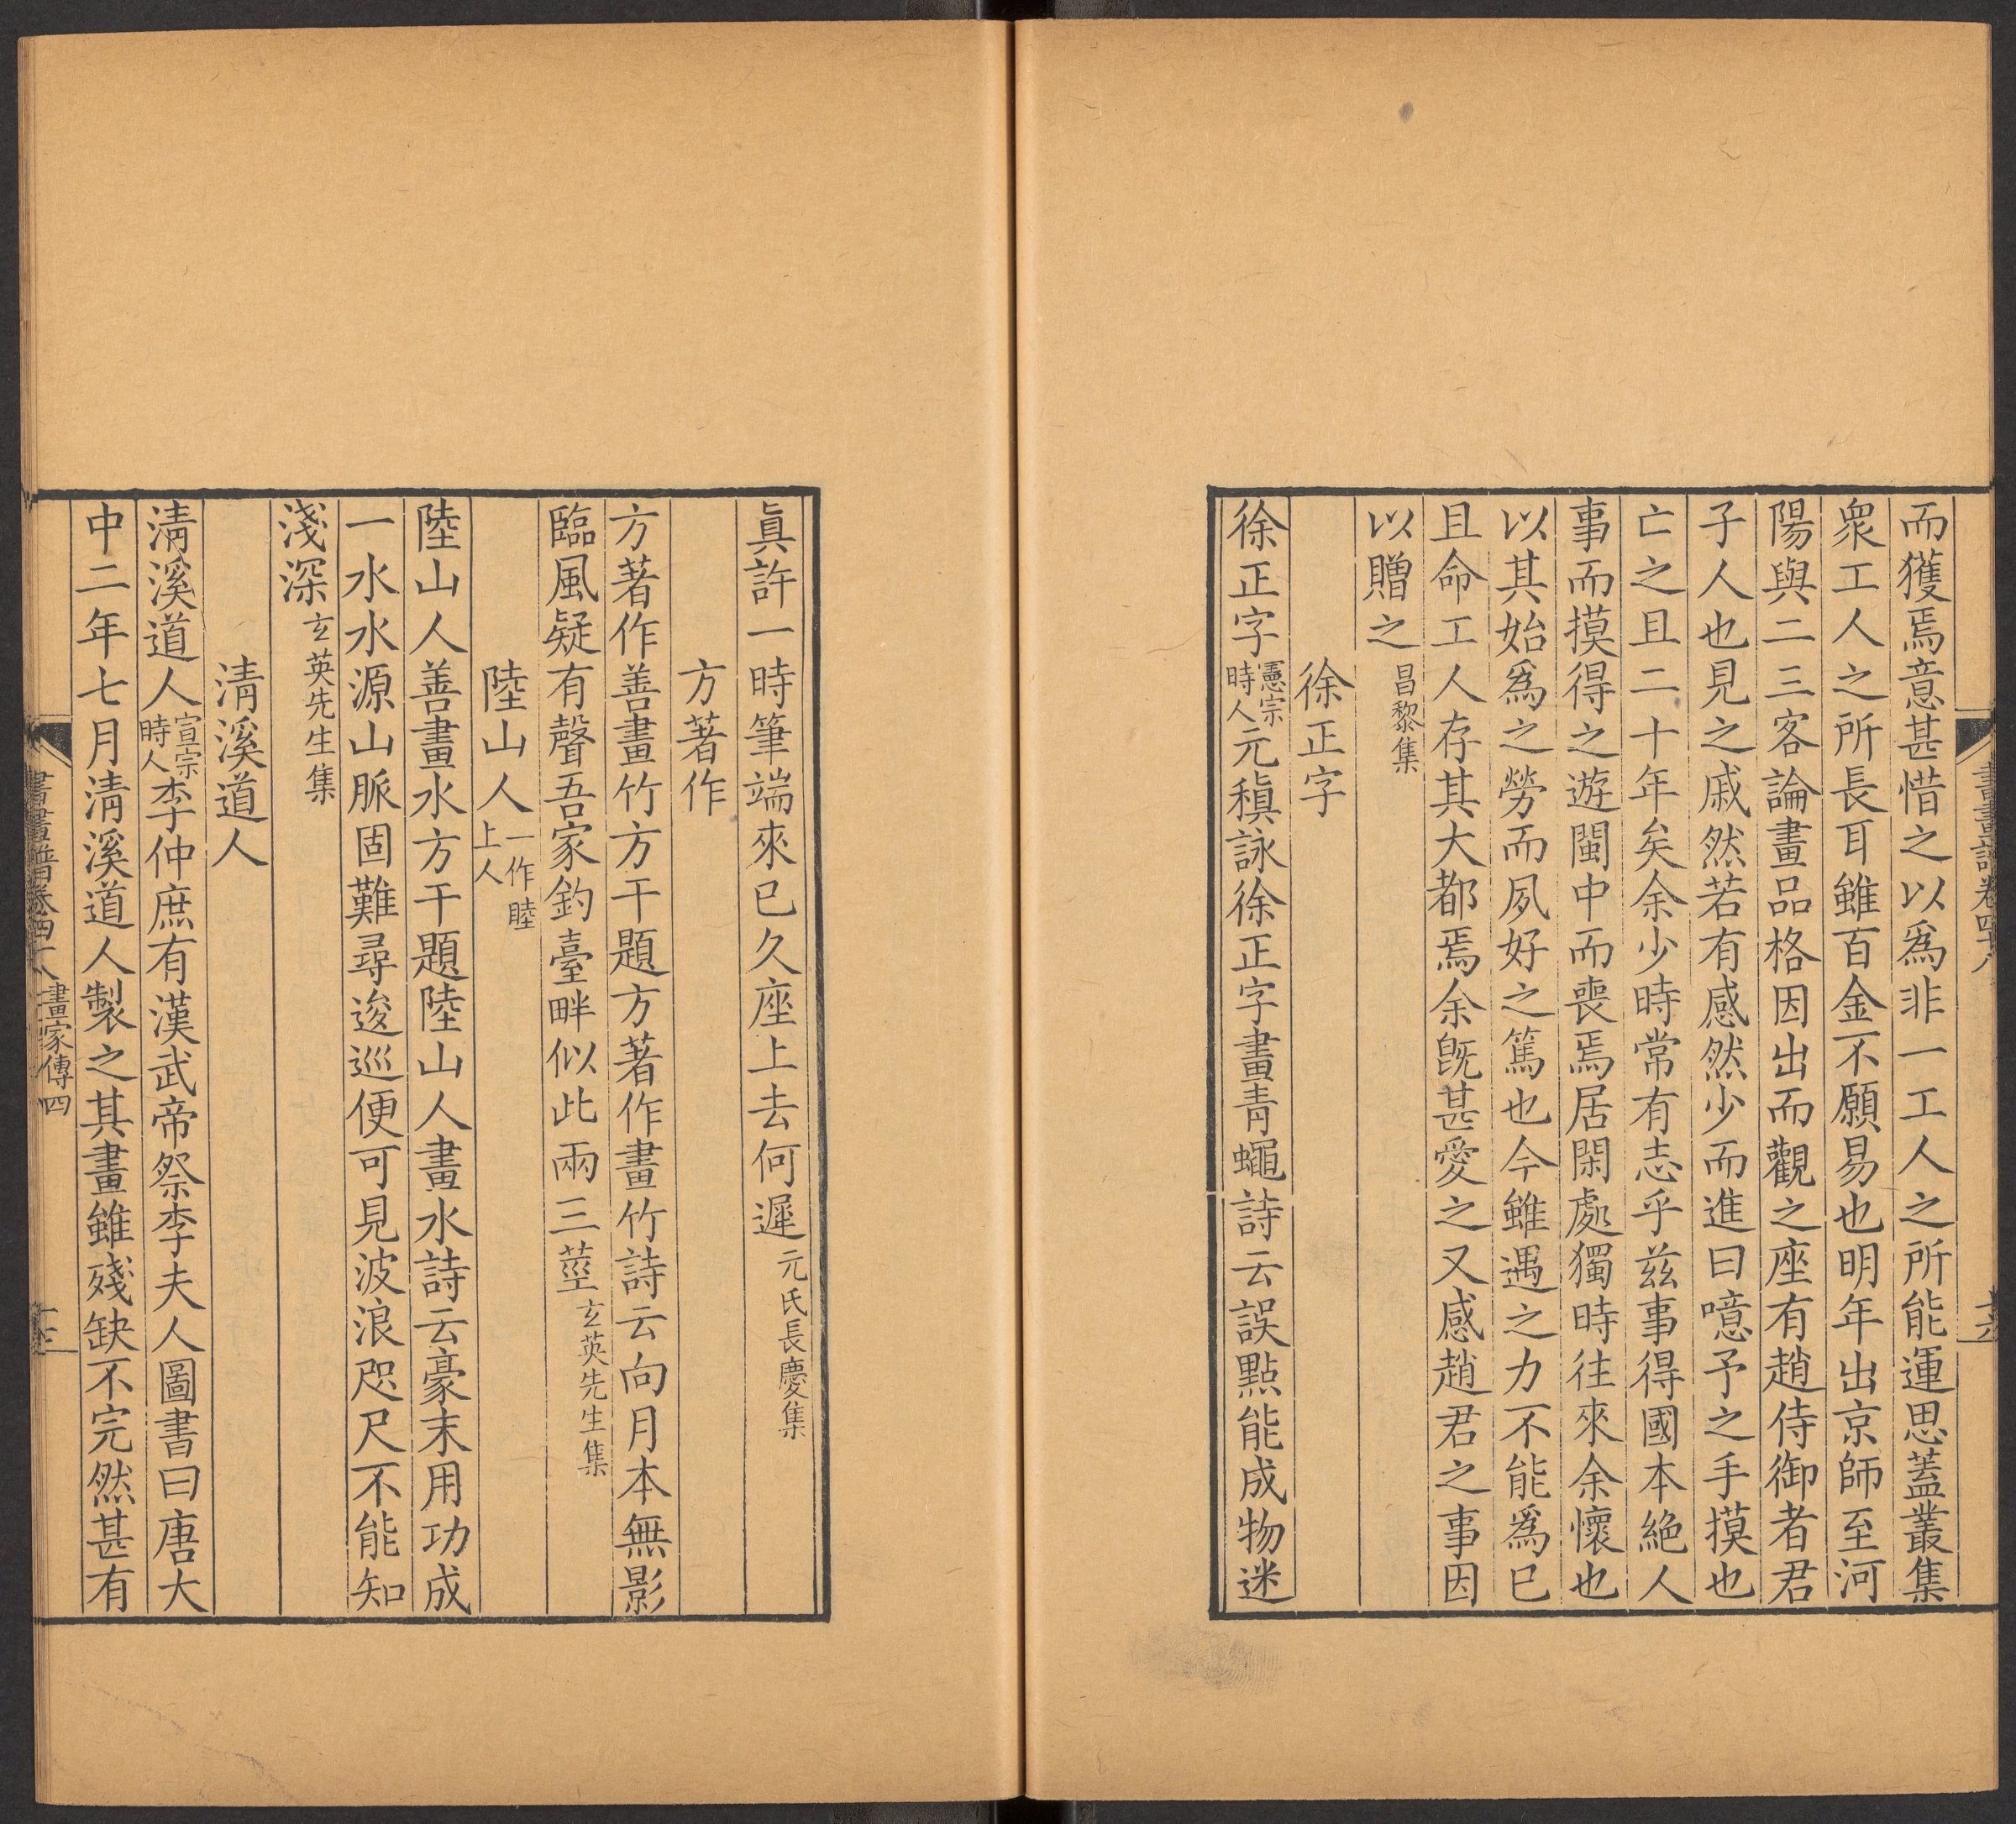 而獲焉意甚惜之以爲非一工人之所能運思蓋叢集
衆工人之所長耳雖百金不願易也明年出京師至河
陽與二三客論畫品格因出而觀之座有趙侍御者君
子人也見之戚然若有感然少而進曰噫予之手摸也
亡之且二十年矣余少時常有志乎茲事得國本絶人
事而摸得之遊閩中而喪焉居閑處獨時往來余懷也
以其始爲之勞而夙好之篤也今雖遇之力不能爲已
且命工人存其大都焉余旣甚愛之又感趙君之事因
以贈之昌黎集
徐正字
徐正字憲宗時人元稹詠徐正字畫青蠅詩云誤點能成物迷
眞許一時筆端來已久座上去何遲元氏長慶集
方著作
方著作善畫竹方干題方著作畫竹詩云向月本無影
臨風疑有聲吾家釣臺畔似此兩三莖玄英先生集
陸山人一作睦上人
陸山人善畫水方干題陸山人畫水詩云豪末用功成
一水水源山脈固難尋逡巡便可見波浪咫尺不能知
淺深玄英先生集
淸溪道人
淸溪道人宣宗時人李仲庶有漢武帝祭李夫人圖書曰唐大
中二年七月淸溪道人製之其畫雖殘缺不完然甚有
書畫譜卷四十八 畫家傳四